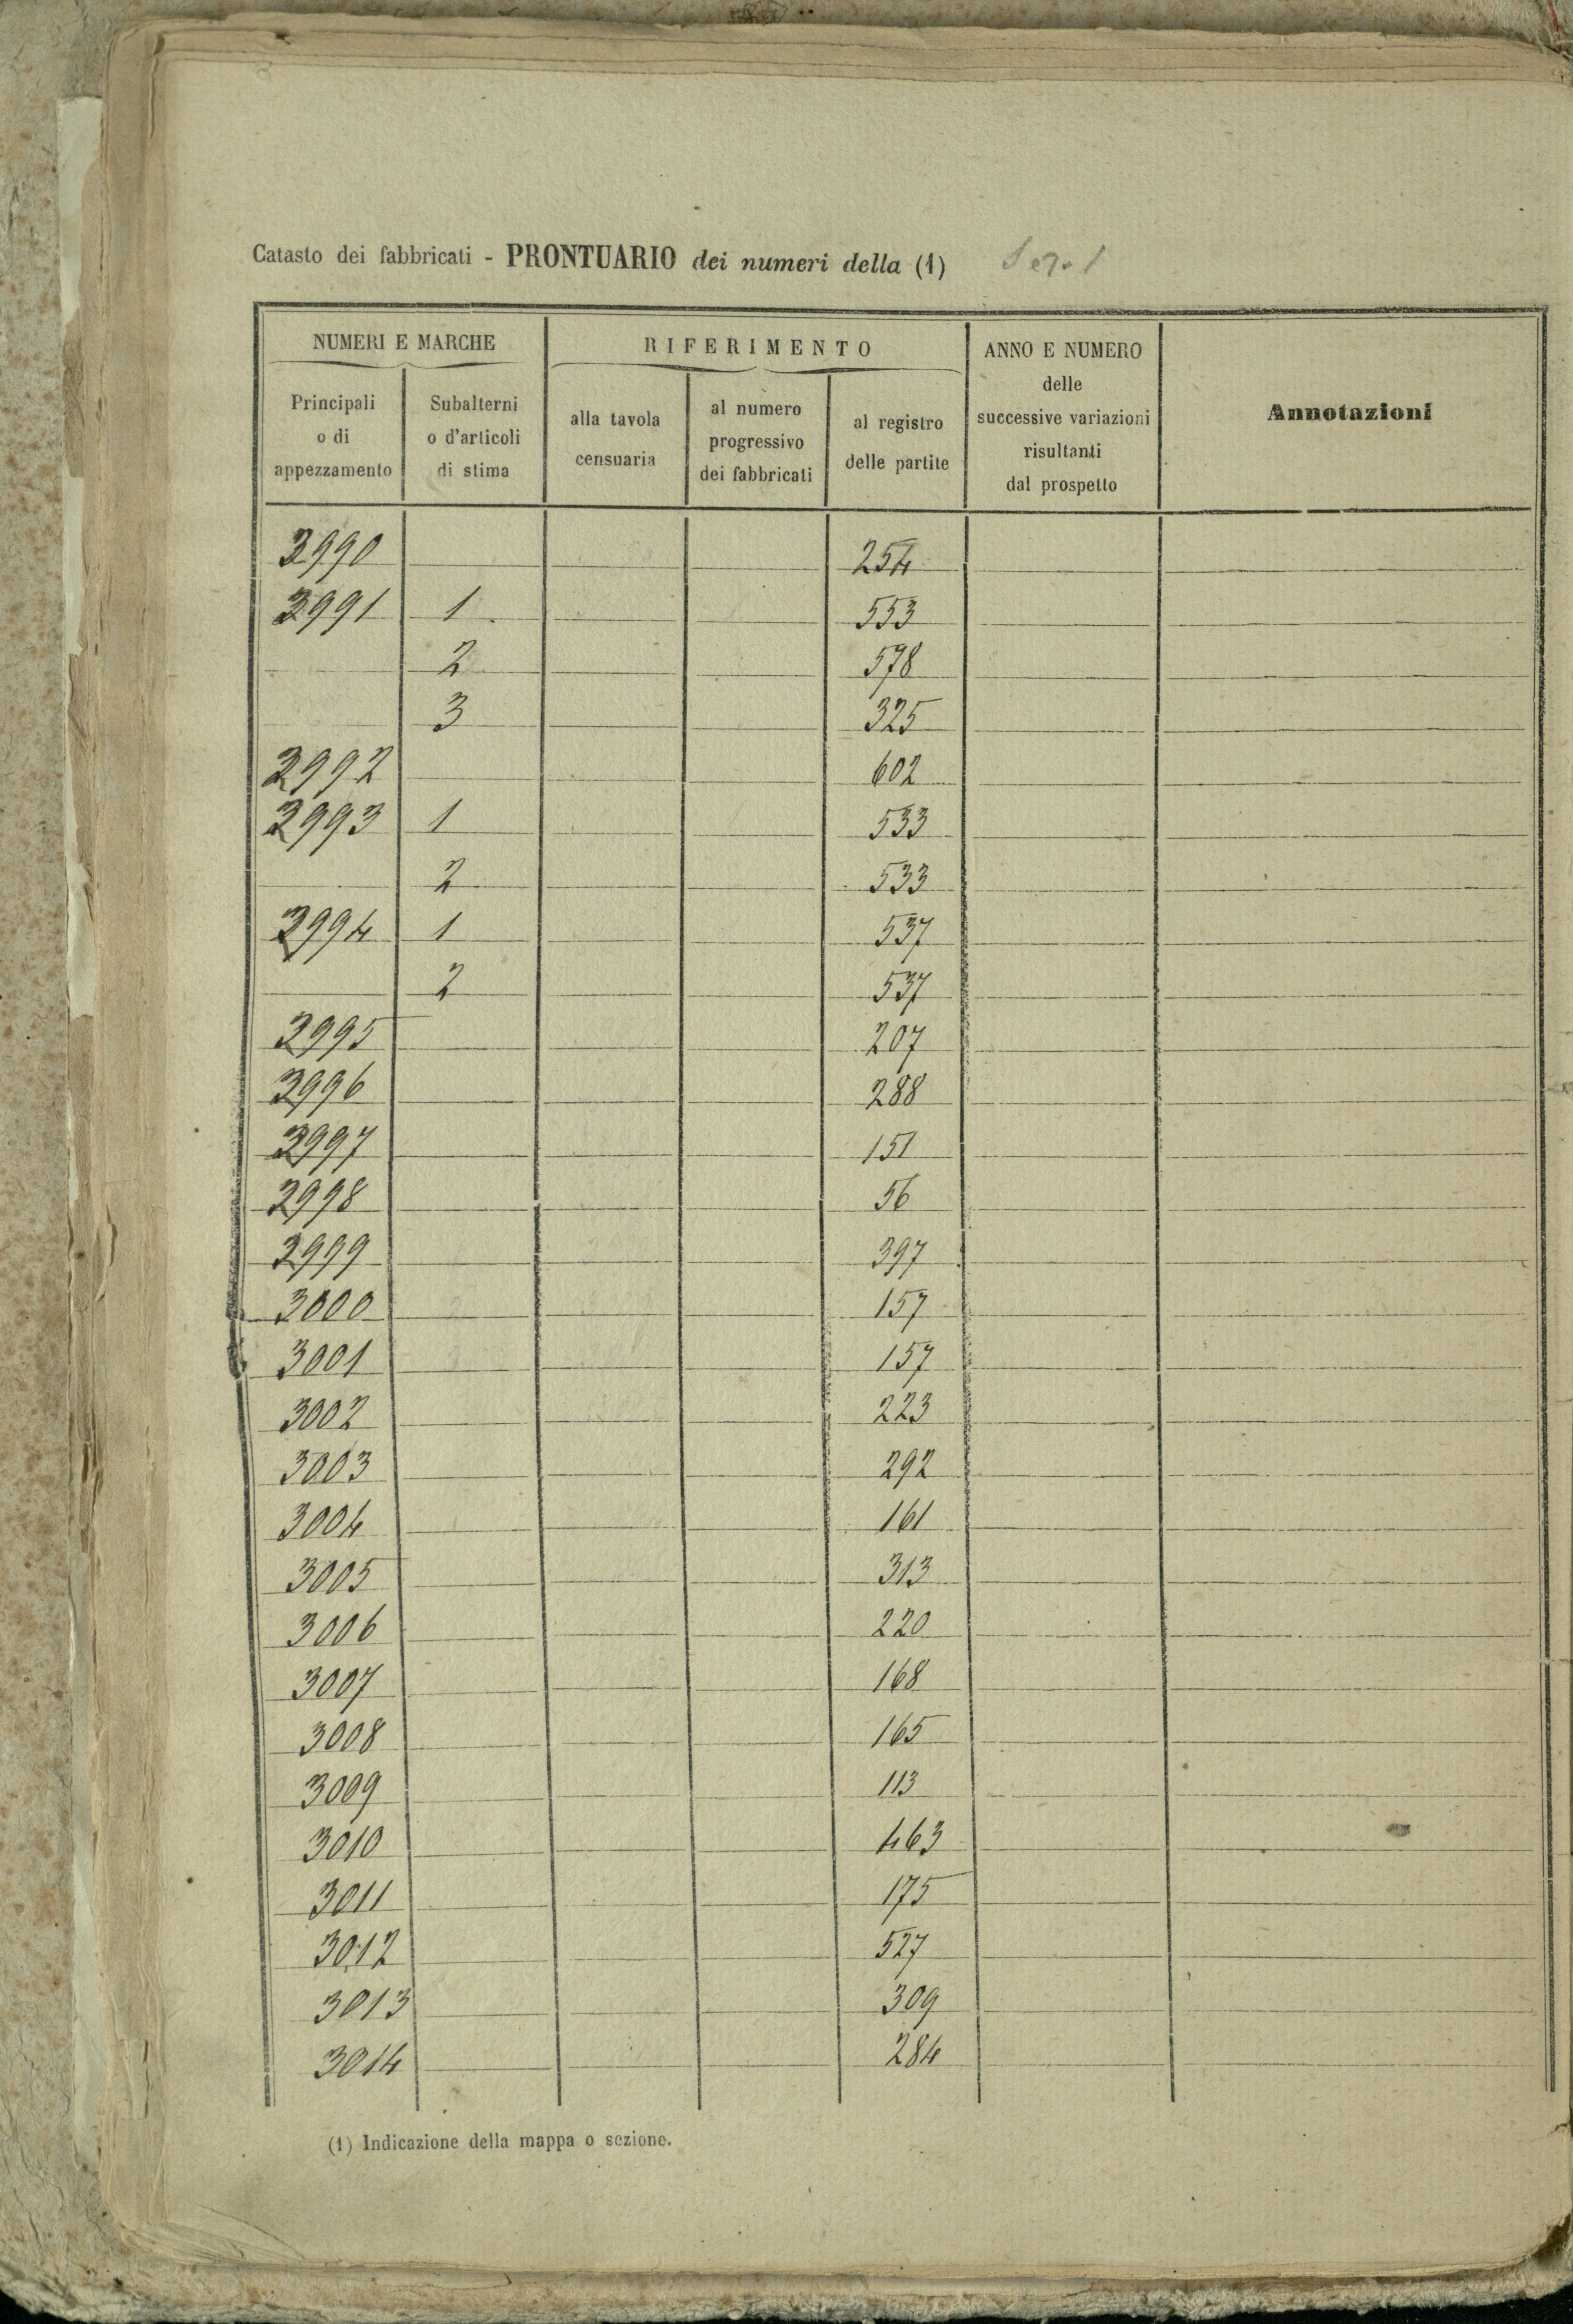 Catasto dei fabbricati - PRONTUARIO dei numeri della (1) Sez. I
NUMERI E MARCHE
RIFERIMENTO
ANNO E NUMERO
delle
successive variazioni
risultanti
dal prospetto
Annotazioni
Principali
o di
appezzamento
Subalterni
o d'articoli
di stima
alla tavola
censuaria
al numero
progressivo
dei fabbricati
al registro
delle partite
2990 254
2991 1 553
2 578
3 325
2992 602
2993 1 533
2 533
2994 1 537
2 537
2995 207
2996 288
2997 151
2998 56
2999 397
3000 157
3001 157
3002 223
3003 292
3004 161
3005 313
3006 220
3007 168
3008 165
3009 113
3010 463
3011 175
3012 527
3013 309
3014 284
(1) Indicazione della mappa o sezione.